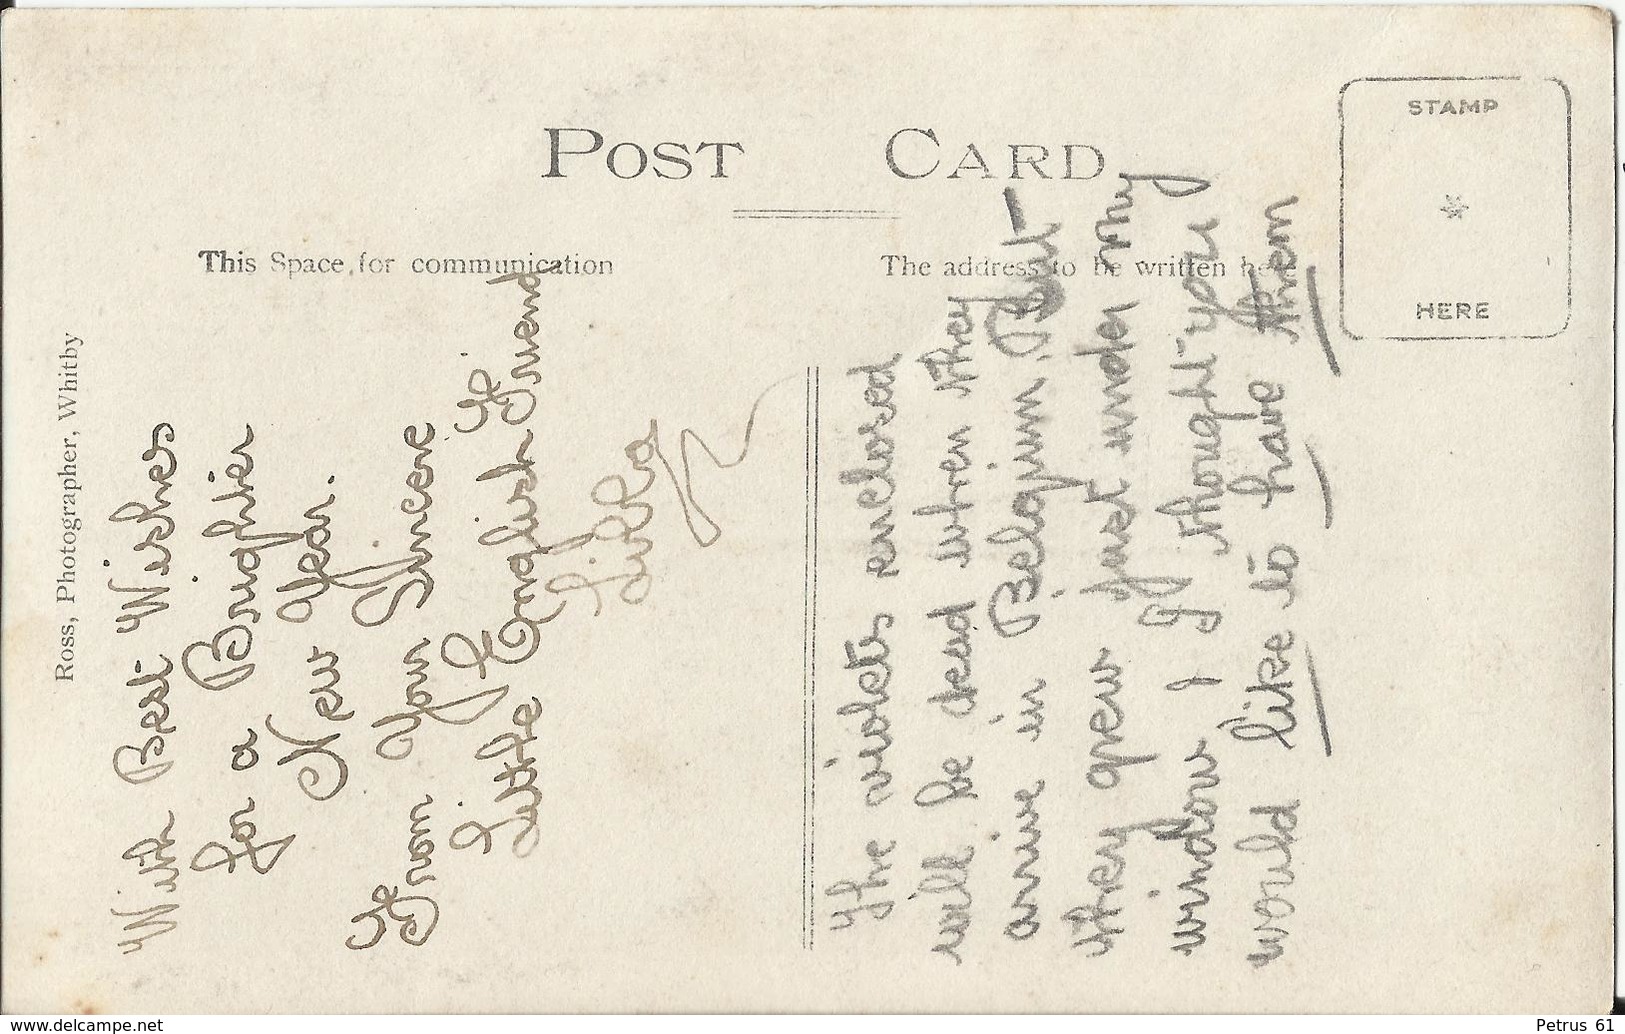 POST CARD
This Space for communication
The address to be written here
STAMP
HERE
Ross, Photographer, Whitby
With Best Wishes
for a Brighter
New Year.
From Your Sincere
Little English Friend
The violets enclosed
will be dead when they
arrive in Belgium But
they grew just under my
window & I thought you
would like to have them
www.delcampe.net
Petrus 61